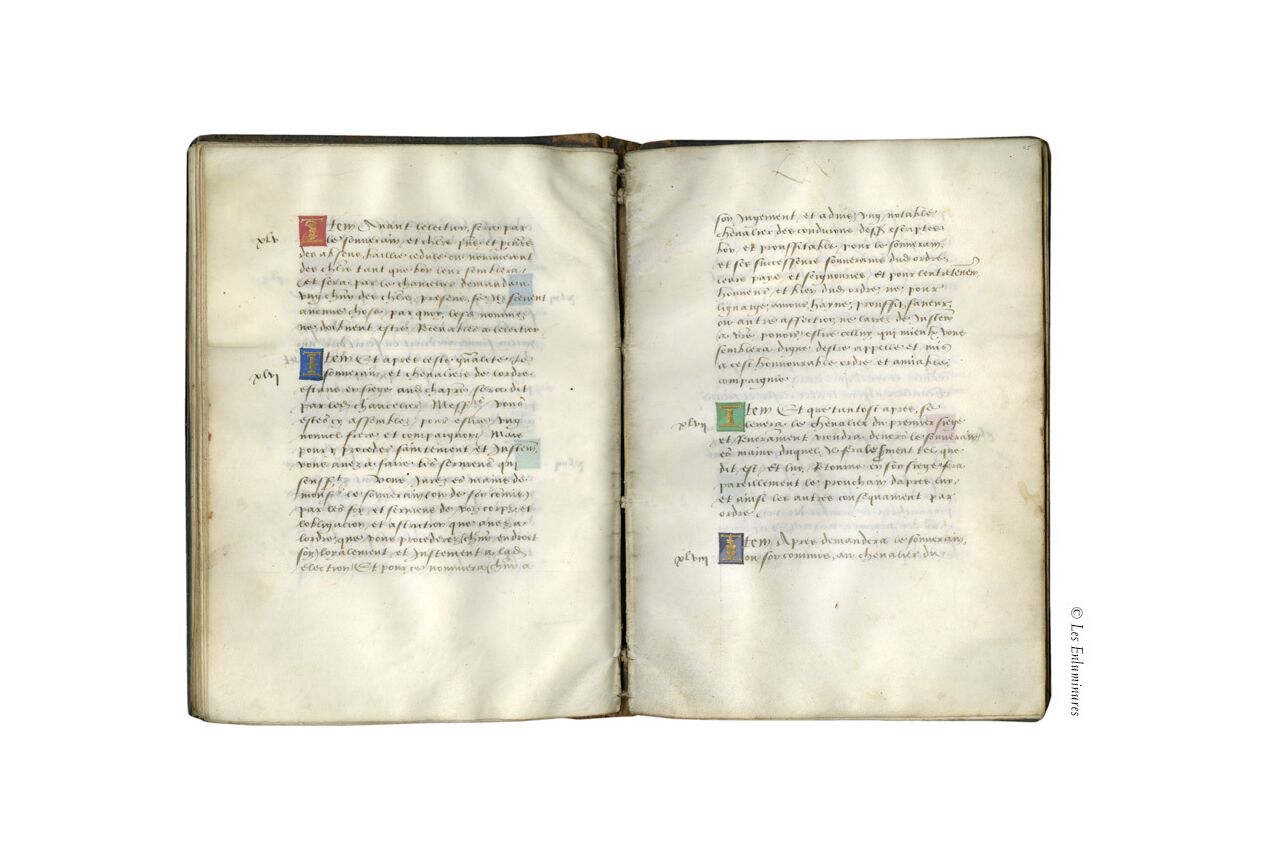 xlv
Item Avant lelection, sera par
le souverain, et
des absens, baillie cedule ou nommeront
tant que bon leur semblera,
et sera par le chancelier demande a
ung des presens, se ilz scevent
aucune chose par quoy, les nommez
ne doibvent estre Recevables a lelection
xlvi
Item Et apres ceste le
souverain, et chevaliers de lordre
estans en siege sera dit
par led chancelier, Vous
estes cy assemblez pour eslire ung
nouvel frere et compaignon, Mais
pour y proceder sainctement et Justemt
vous avez a faire les sermens qui
Vous Jurez es mains de
le souverain, ou de son comis,
par les foy et sermens de voz corps, et
lobligacion, et astriction que avez a
lordre, que vous procederez, endroit
soy, loyalement et Justement a lad
election, Et pour ce nommera, a
son Jugement, et advis, ung notable
chevalier des condicions escriptes
bon, et prouffitable, pour le souverain,
et ses successeurs souverains dud ordre,
leurs pays et seignouries, et pour lentretenem
honneur, et bien dud ordre, ne pour
lignaige, amour, hayne, prouffit, faveur,
ou autre affection, ne lairez de Justem
a vre povoir eslire celluy, qui mieulx vous
semblera digne destre appelle et mis
a cest honnourable ordre et amiable
compaignie.
xlvii
Item Et que tantost apres, se
levera le chevalier du premier siege
et Reveramment viendra devers le souverain,
es mains duquel, tel que
dit est, et luy, Retourne en son siege, fera
pareillement le prouchain dapres luy,
et ainsi les autres consequament par
ordre.
xlviii
Item, Apres demandera le souverain,
ou son commis, au chevalier du
© Les Enluminures